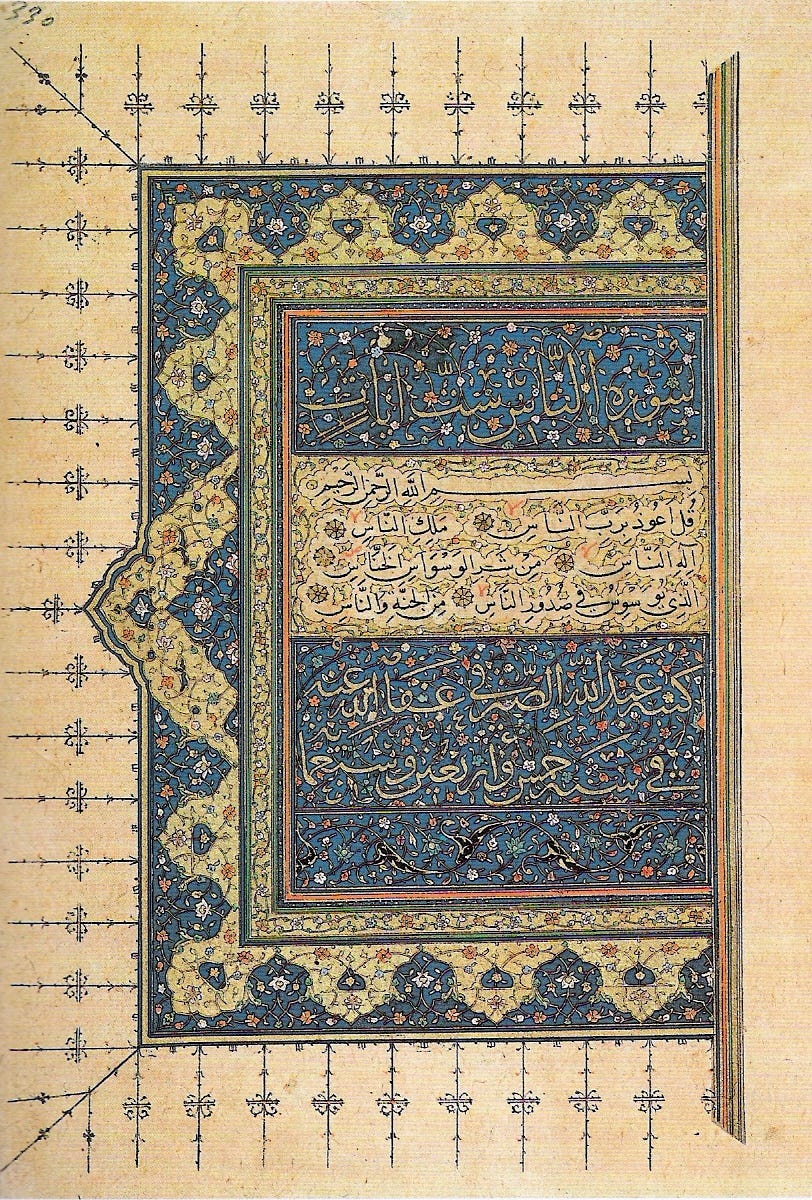 330
سُورة النَّاس ستّ ايات
بسم الله الرَّحمٰن الرَّحيم
قُل اَعُوذُ بِرَبِّ النَّاسِ مَلِكِ النَّاسِ
اِلٰهِ النَّاسِ مِن شَرِّ الوَسوَاسِ الخَنَّاسِ
الَّذِي يُوَسوِسُ في صُدُورِ النَّاسِ مِنَ الجِنَّةِ وَالنَّاسِ
كتبه عبد الله الصيرفي عفا الله عنه
في سنة خمس واربعين وسبعمايه